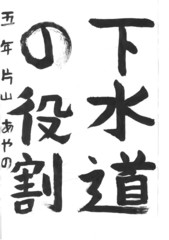 下水道
の役割
五年片山あやの